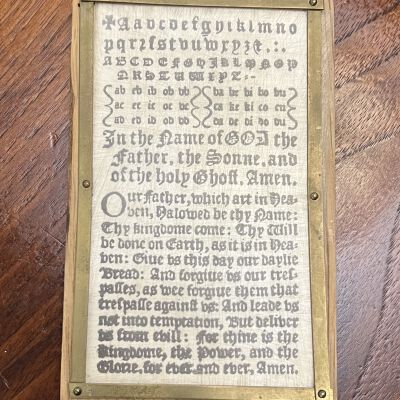 ✠Aabcdefghiklmno
pqrzſstvuwxyz&.:.
ABCDEFGHIKLMNOP
QRSTUWXYZ
ab eb ib ob vb ba be bi bo bu
ac ec ic oc vc ca ce ki co cu
ad ed id od vd da de di do du
In the Name of GOD the
Father, the Sonne, and
of the holy Ghoſt. Amen.
Our Father, which art in Hea-
ven, Halowed be thy Name:
Thy kingdome come: Thy Will
be done on Earth, as it is in Hea-
ven: Giue vs this day our daylie
Bread: And forgiue vs our treſ-
paſſes, as wee forgiue them that
treſpaſſe againſt vs: And leade vs
not into temptation, But deliver
vs from evill: For thine is the
kingdome, the Power, and the
Glorie, for ever and ever, Amen.